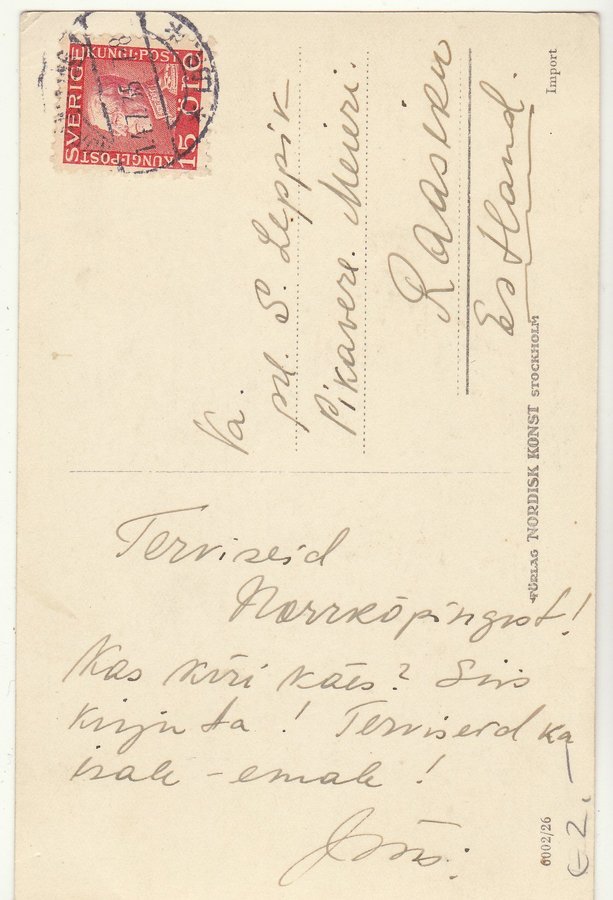 SVERIGE
KUNGL-POST
KUNGL-POST
15 ÖRE
Va.
prl. S. Leppik
Pikavere Meierei.
Raasiku
Estland.
Import
FÖRLAG NORDISK KONST STOCKHOLM
Terviseid
Norrköpingist!
Kas kiri käes? Siis
kirjuta! Terviseid ka
isale-emale!
6002/26
€ 2.-